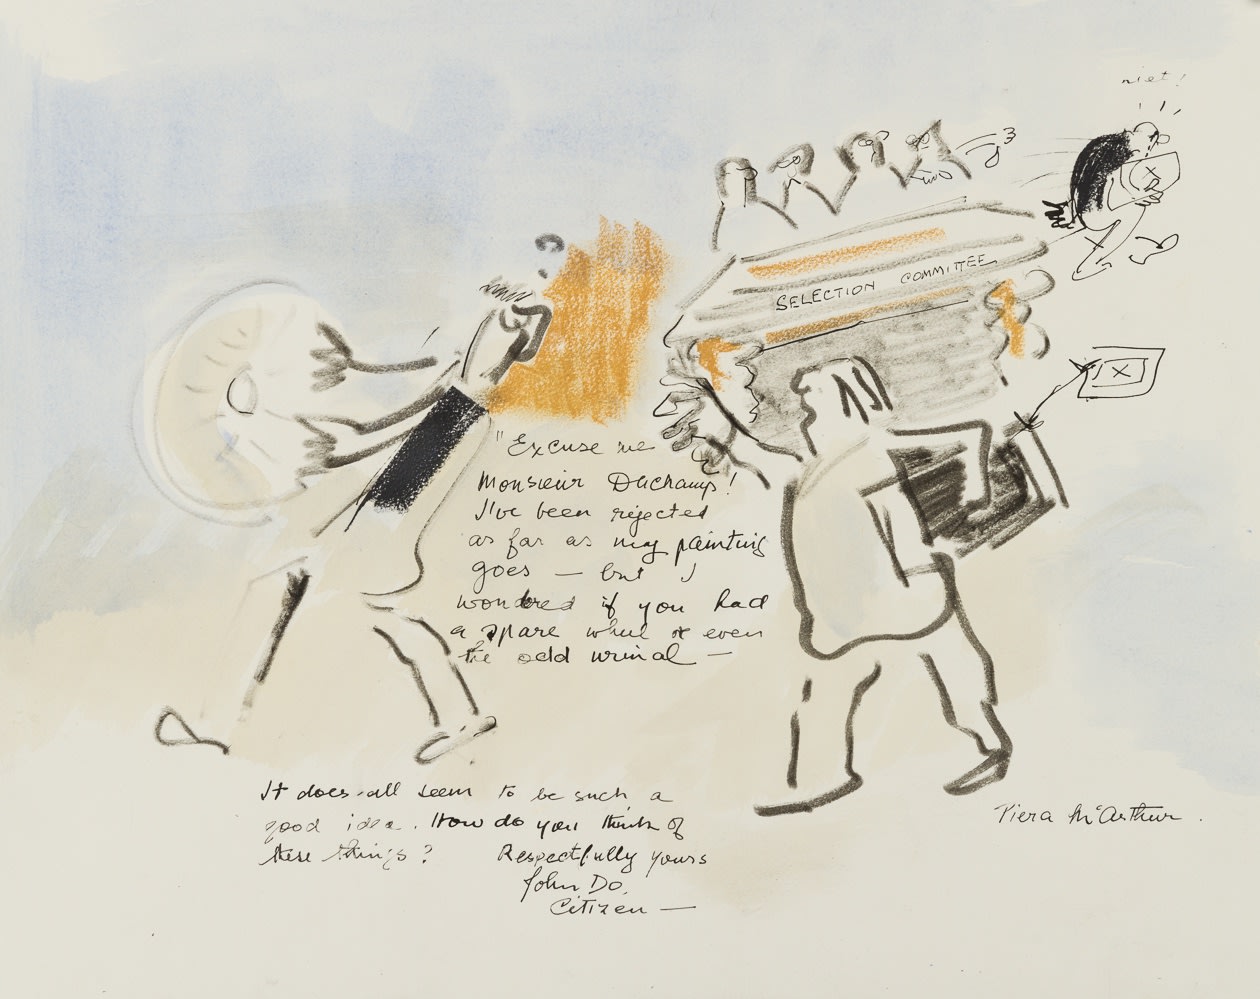 niet!
SELECTION COMMITTEE
"Excuse me
Monsieur Duchamp!
I've been rejected
as far as my painting
goes — but I
wondred if you had
a spare wheel or even
the odd urinal —
It does all seem to be such a
good idea. How do you think of
these things? Respectfully yours
John Do.
Citizen —
Piera McArthur.